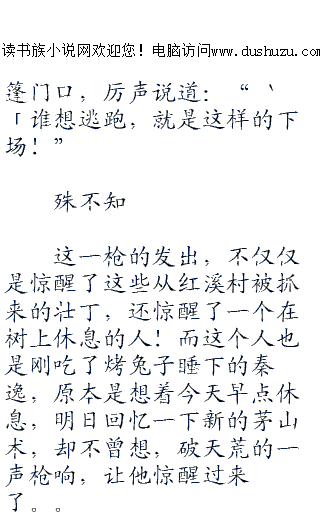 读书族小说网欢迎您！电脑访问www.dushuzu.com
篷门口，厉声说道：“‵
「谁想逃跑，就是这样的下
场！”
殊不知
这一枪的发出，不仅仅
是惊醒了这些从红溪村被抓
来的壮丁，还惊醒了一个在
树上休息的人！而这个人也
是刚吃了烤兔子睡下的秦
逸，原本是想着今天早点休
息，明日回忆一下新的茅山
术，却不曾想，破天荒的一
声枪响，让他惊醒过来
了。。